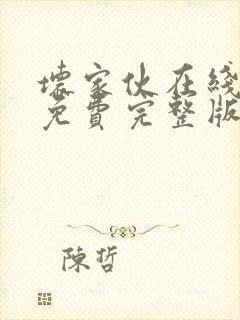 壞家伙在綫
免費完整版
陳哲